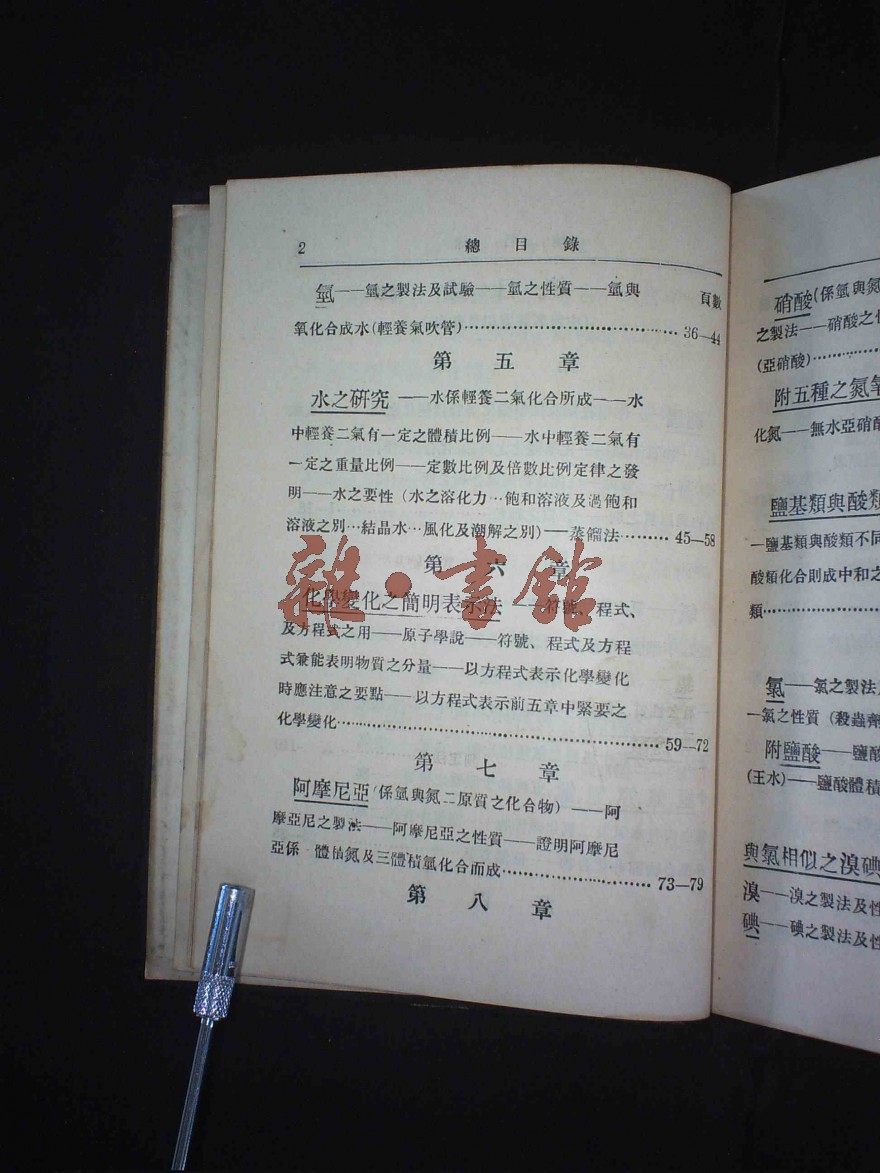 2 總目錄
頁數
氫——氫之製法及試驗——氫之性質——氫與
氧化合成水(輕養氣吹管)………………………36—44
第五章
水之硏究——水係輕養二氣化合所成——水
中輕養二氣有一定之體積比例——水中輕養二氣有
一定之重量比例——定數比例及倍數比例定律之發
明——水之要性(水之溶化力…飽和溶液及過飽和
溶液之別…結晶水…風化及潮解之別)——蒸餾法………45—58
第六章
化學變化之簡明表示法——符號、程式、
及方程式之用——原子學說——符號、程式及方程
式兼能表明物質之分量——以方程式表示化學變化
時應注意之要點——以方程式表示前五章中緊要之
化學變化………………………………………59—72
第七章
阿摩尼亞(係氫與氮二原質之化合物)——阿
摩亞尼之製法——阿摩尼亞之性質——證明阿摩尼
亞係一體積氮及三體積氫化合而成…………………73—79
第八章
雜·書館
硝酸(係氫與氮
之製法——硝酸之性
(亞硝酸)…………
附五種之氮氧
化氮——無水亞硝酸
鹽基類與酸類
—鹽基類與酸類不同
酸類化合則成中和之
類……………
氯——氯之製法
—氯之性質(殺蟲劑
附鹽酸——鹽酸
(王水)——鹽酸體積
與氯相似之溴碘
溴——溴之製法及性
碘——碘之製法及性